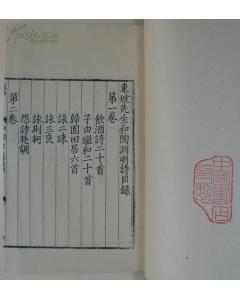 東坡先生和陶淵明詩目錄
第一卷
飲酒詩二十首
子由繼和二十首
歸園田居六首
詠二疎
詠三良
詠荊軻
第二卷
怨詩楚調